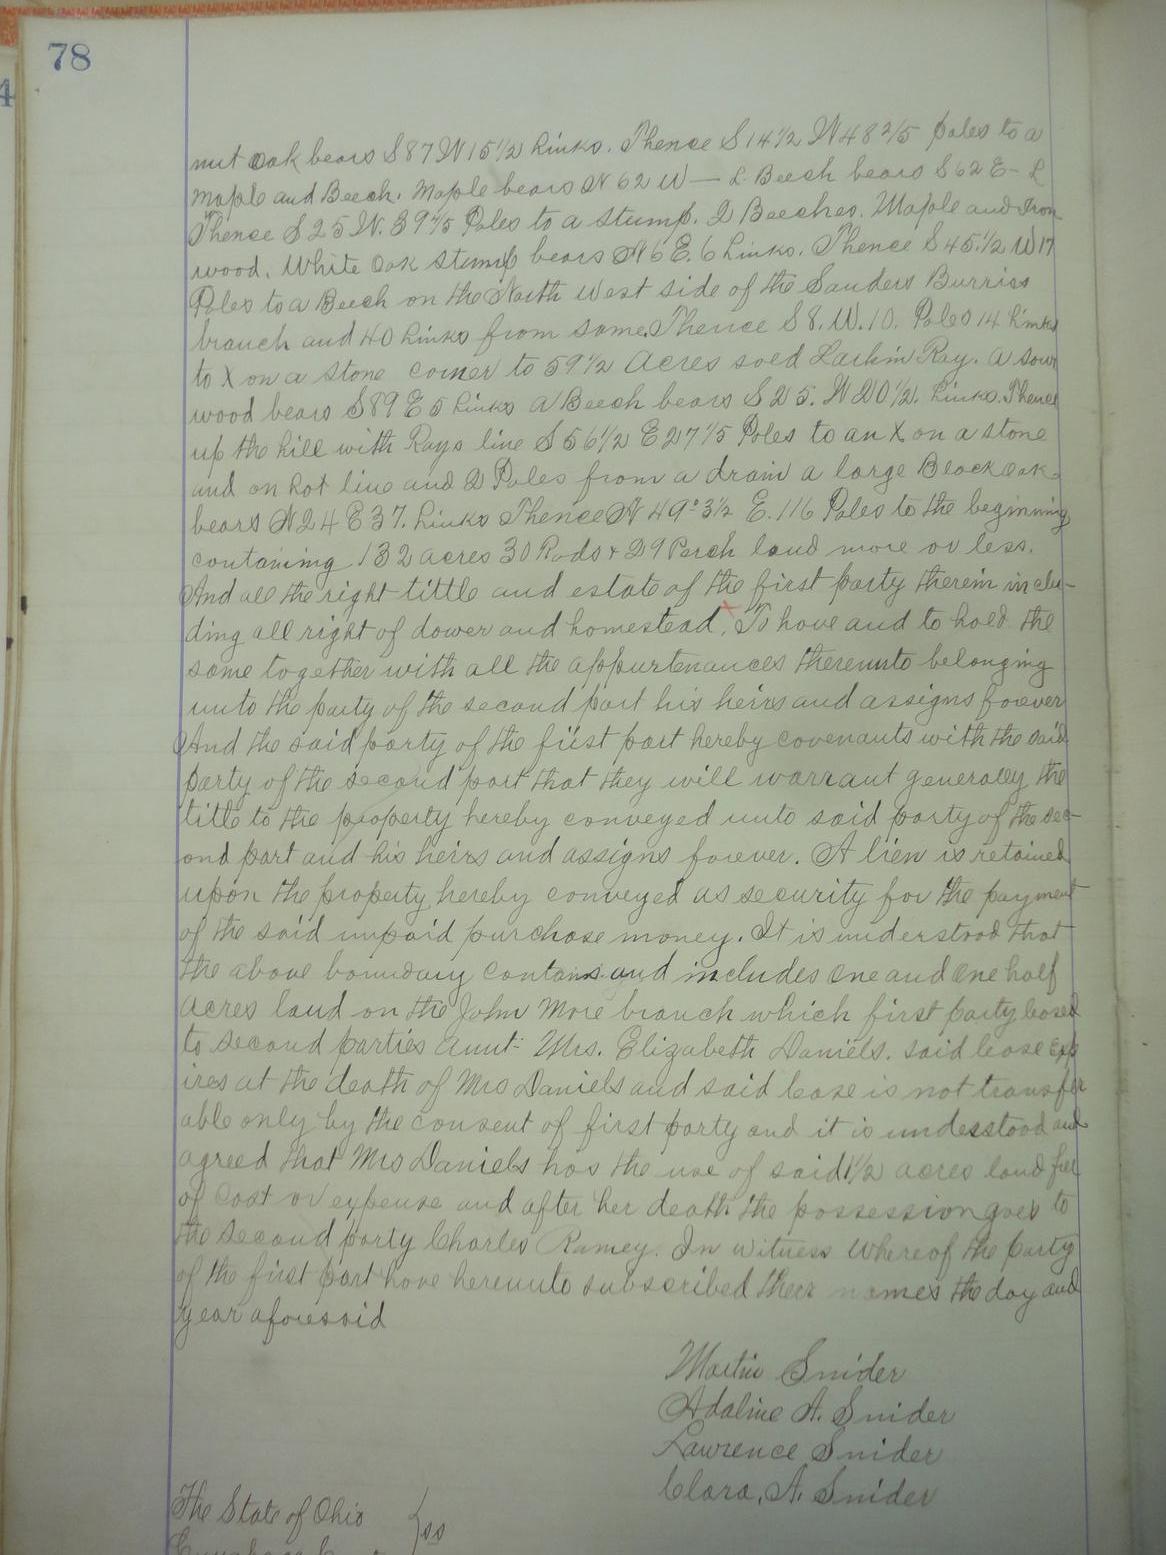 78
nut oak bears S 87 W 15 1/2 Links. Thence S 14 1/2 W 48 2/5 poles to a
Maple and Beech. Maple bears N 62 W — L. Beech bears S 62 E - L
Thence S 25 W. 39 4/5 Poles to a stump. 2 Beeches. Maple and Iron
wood. White Oak stump bears N 6 E. 6 Links. Thence S 45 1/2 W 17
Poles to a Beech on the North West side of the Sanders Burriss
branch and 40 Links from same. Thence S 8. W. 10. Poles 14 Links
to X on a stone corner to 59 1/2 Acres soed Ray. A sour
wood bears S 89 E 5 Links A Beech bears S 25. W 20 1/2. Links. Thence
up the hill with Rays line S 56 1/2 E 27 1/5 Poles to an X on a stone
and on Lot line and 2 Poles from a drain a large Black oak
bears N 24 E 37. Links Thence N 49° 3 1/2 E. 116 Poles to the beginning
containing 132 acres 30 Rods & 29 Perch land more or less.
And all the right tittle and estate of the first party therein inclu-
ding all right of dower and homestead. To have and to hold the
same together with all the appurtenances thereunto belonging
unto the party of the second part his heirs and assigns forever
And the said party of the first part hereby covenants with the said
party of the second part that they will warrant generally the
title to the property hereby conveyed unto said party of the sec-
ond part and his heirs and assigns forever. A lien is retained
upon the property hereby conveyed as security for the payment
of the said unpaid purchase money. It is understood that
the above boundary contains and includes One and One half
acres land on the John More branch which first party leased
to second parties aunt Mrs. Elizabeth Daniels. said lease exp
ires at the death of Mrs Daniels and said lease is not transfer
able only by the consent of first party and it is understood and
agreed that Mrs Daniels has the use of said 1 1/2 acres land free
of cost or expense and after her death the possession goes to
the second party Charles Ramey. In witness whereof the party
of the first part have hereunto subscribed their names the day and
year aforesaid
Martin Snider
Adaline A. Snider
Lawrence Snider
Clara, A. Snider
The State of Ohio } ss